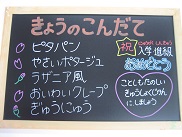 きょうのこんだて
ピタパン
やさいポタージュ
ラザニア風
おいわいクレープ
ぎゅうにゅう
祝
入学進級
おめでとう
ことしもたのしい
きゅうしょくじかんに
しましょう